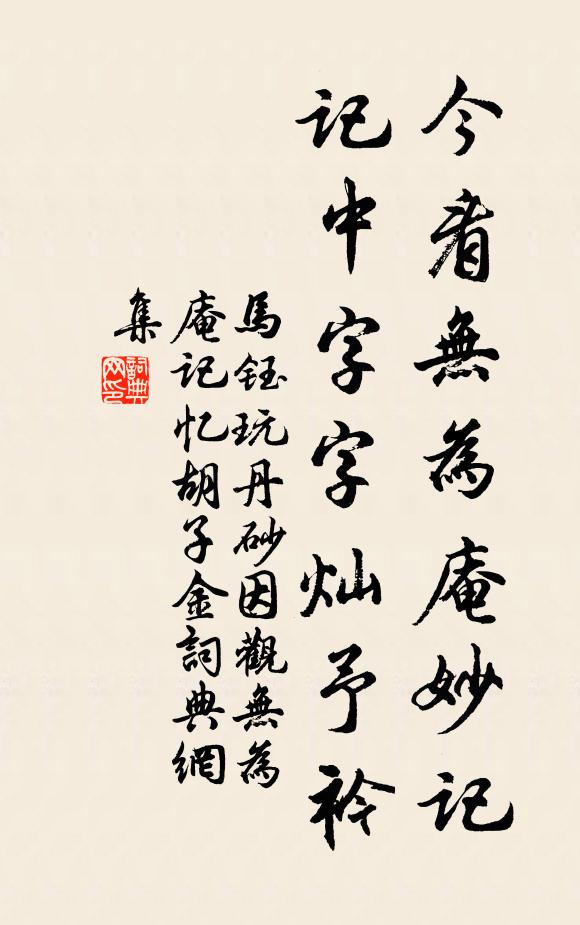 今看無為庵妙記
記中字字灿予衿
馬鈺玩丹砂因觀無為
庵记忆胡子金詞典網
集
詞典网印